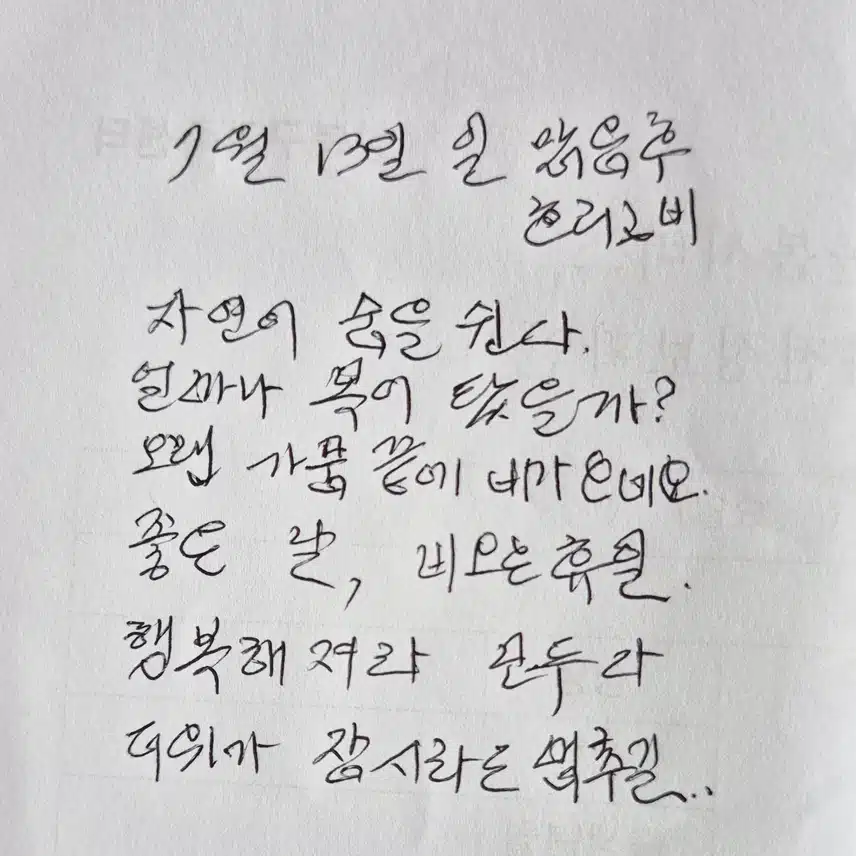 7월 13일 일 맑음후
흐리고비
자연이 숨을 쉰다.
얼마나 목이 탔을까?
오랜 가뭄 끝에 비가 오네요.
좋은 날, 비오는 휴일.
행복해져라 모두다
더위가 잠시라도 멈추길..